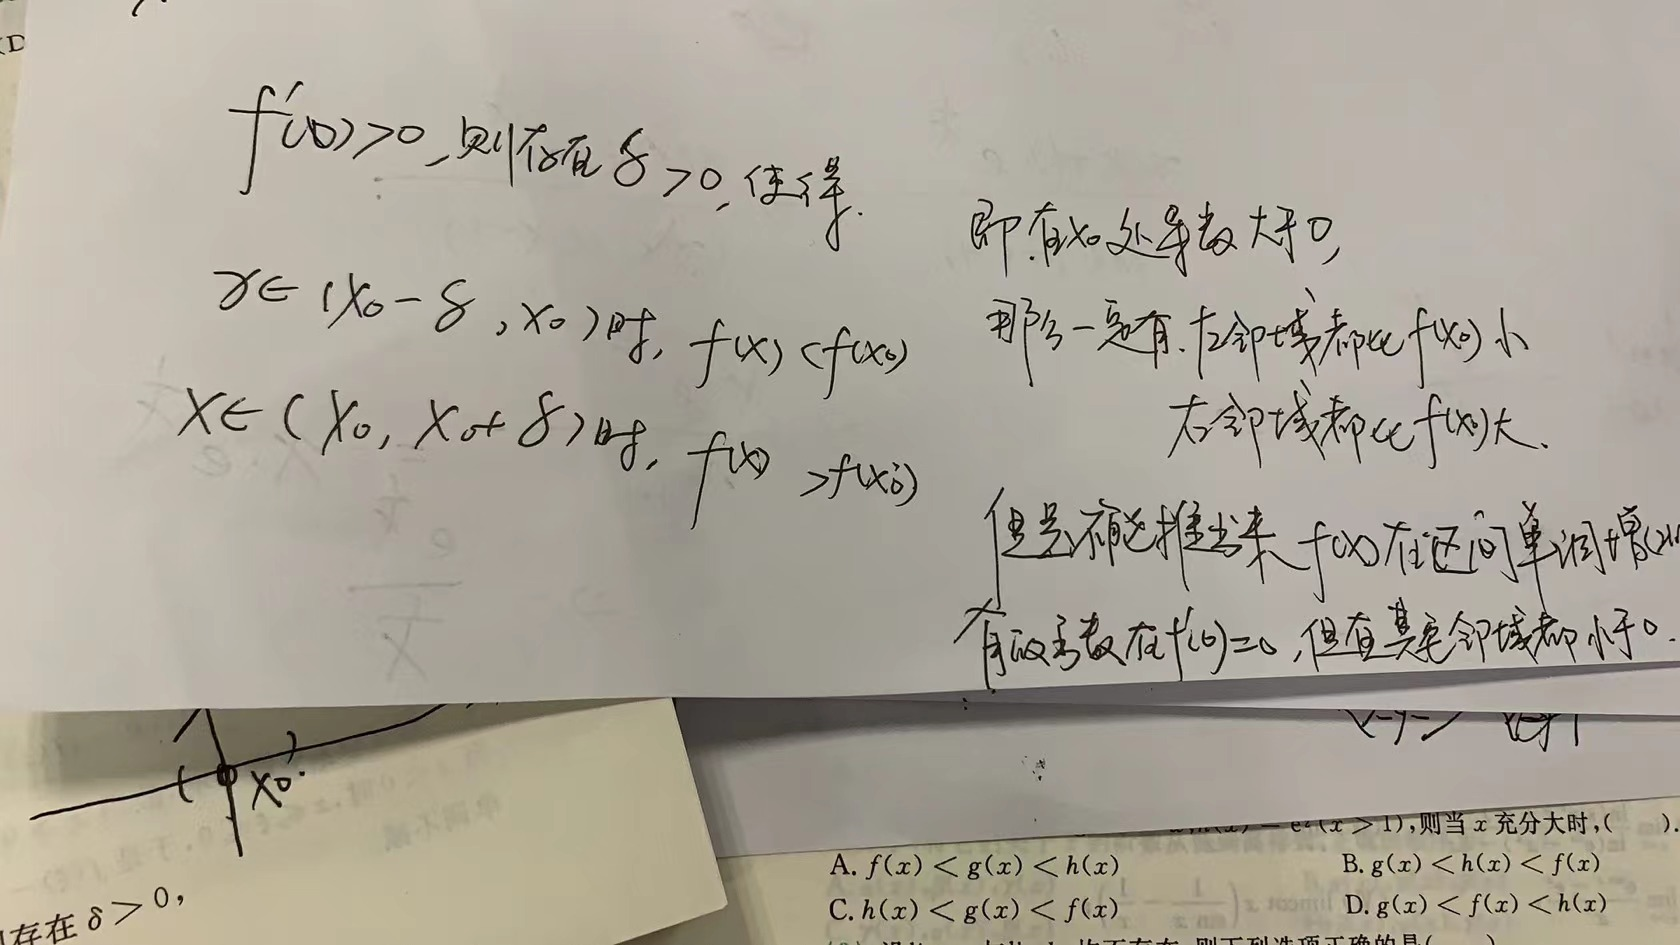 f'(0)>0,则存在δ>0,使得.
x∈(x₀-δ,x₀)时,f(x)<f(x₀)
x∈(x₀,x₀+δ)时,f(x)>f(x₀)
即在x₀处导数大于0,
那么一定有.左邻域都比f(x₀)小
右邻域都比f(x₀)大.
但是不能推出来f(x)在区间单调增
有的函数在f'(0)=0,但在某邻域都小于0.
x₀.
存在δ>0,
(x>1),则当x充分大时,( ).
A. f(x)<g(x)<h(x)
B. g(x)<h(x)<f(x)
C. h(x)<g(x)<f(x)
D. g(x)<f(x)<h(x)